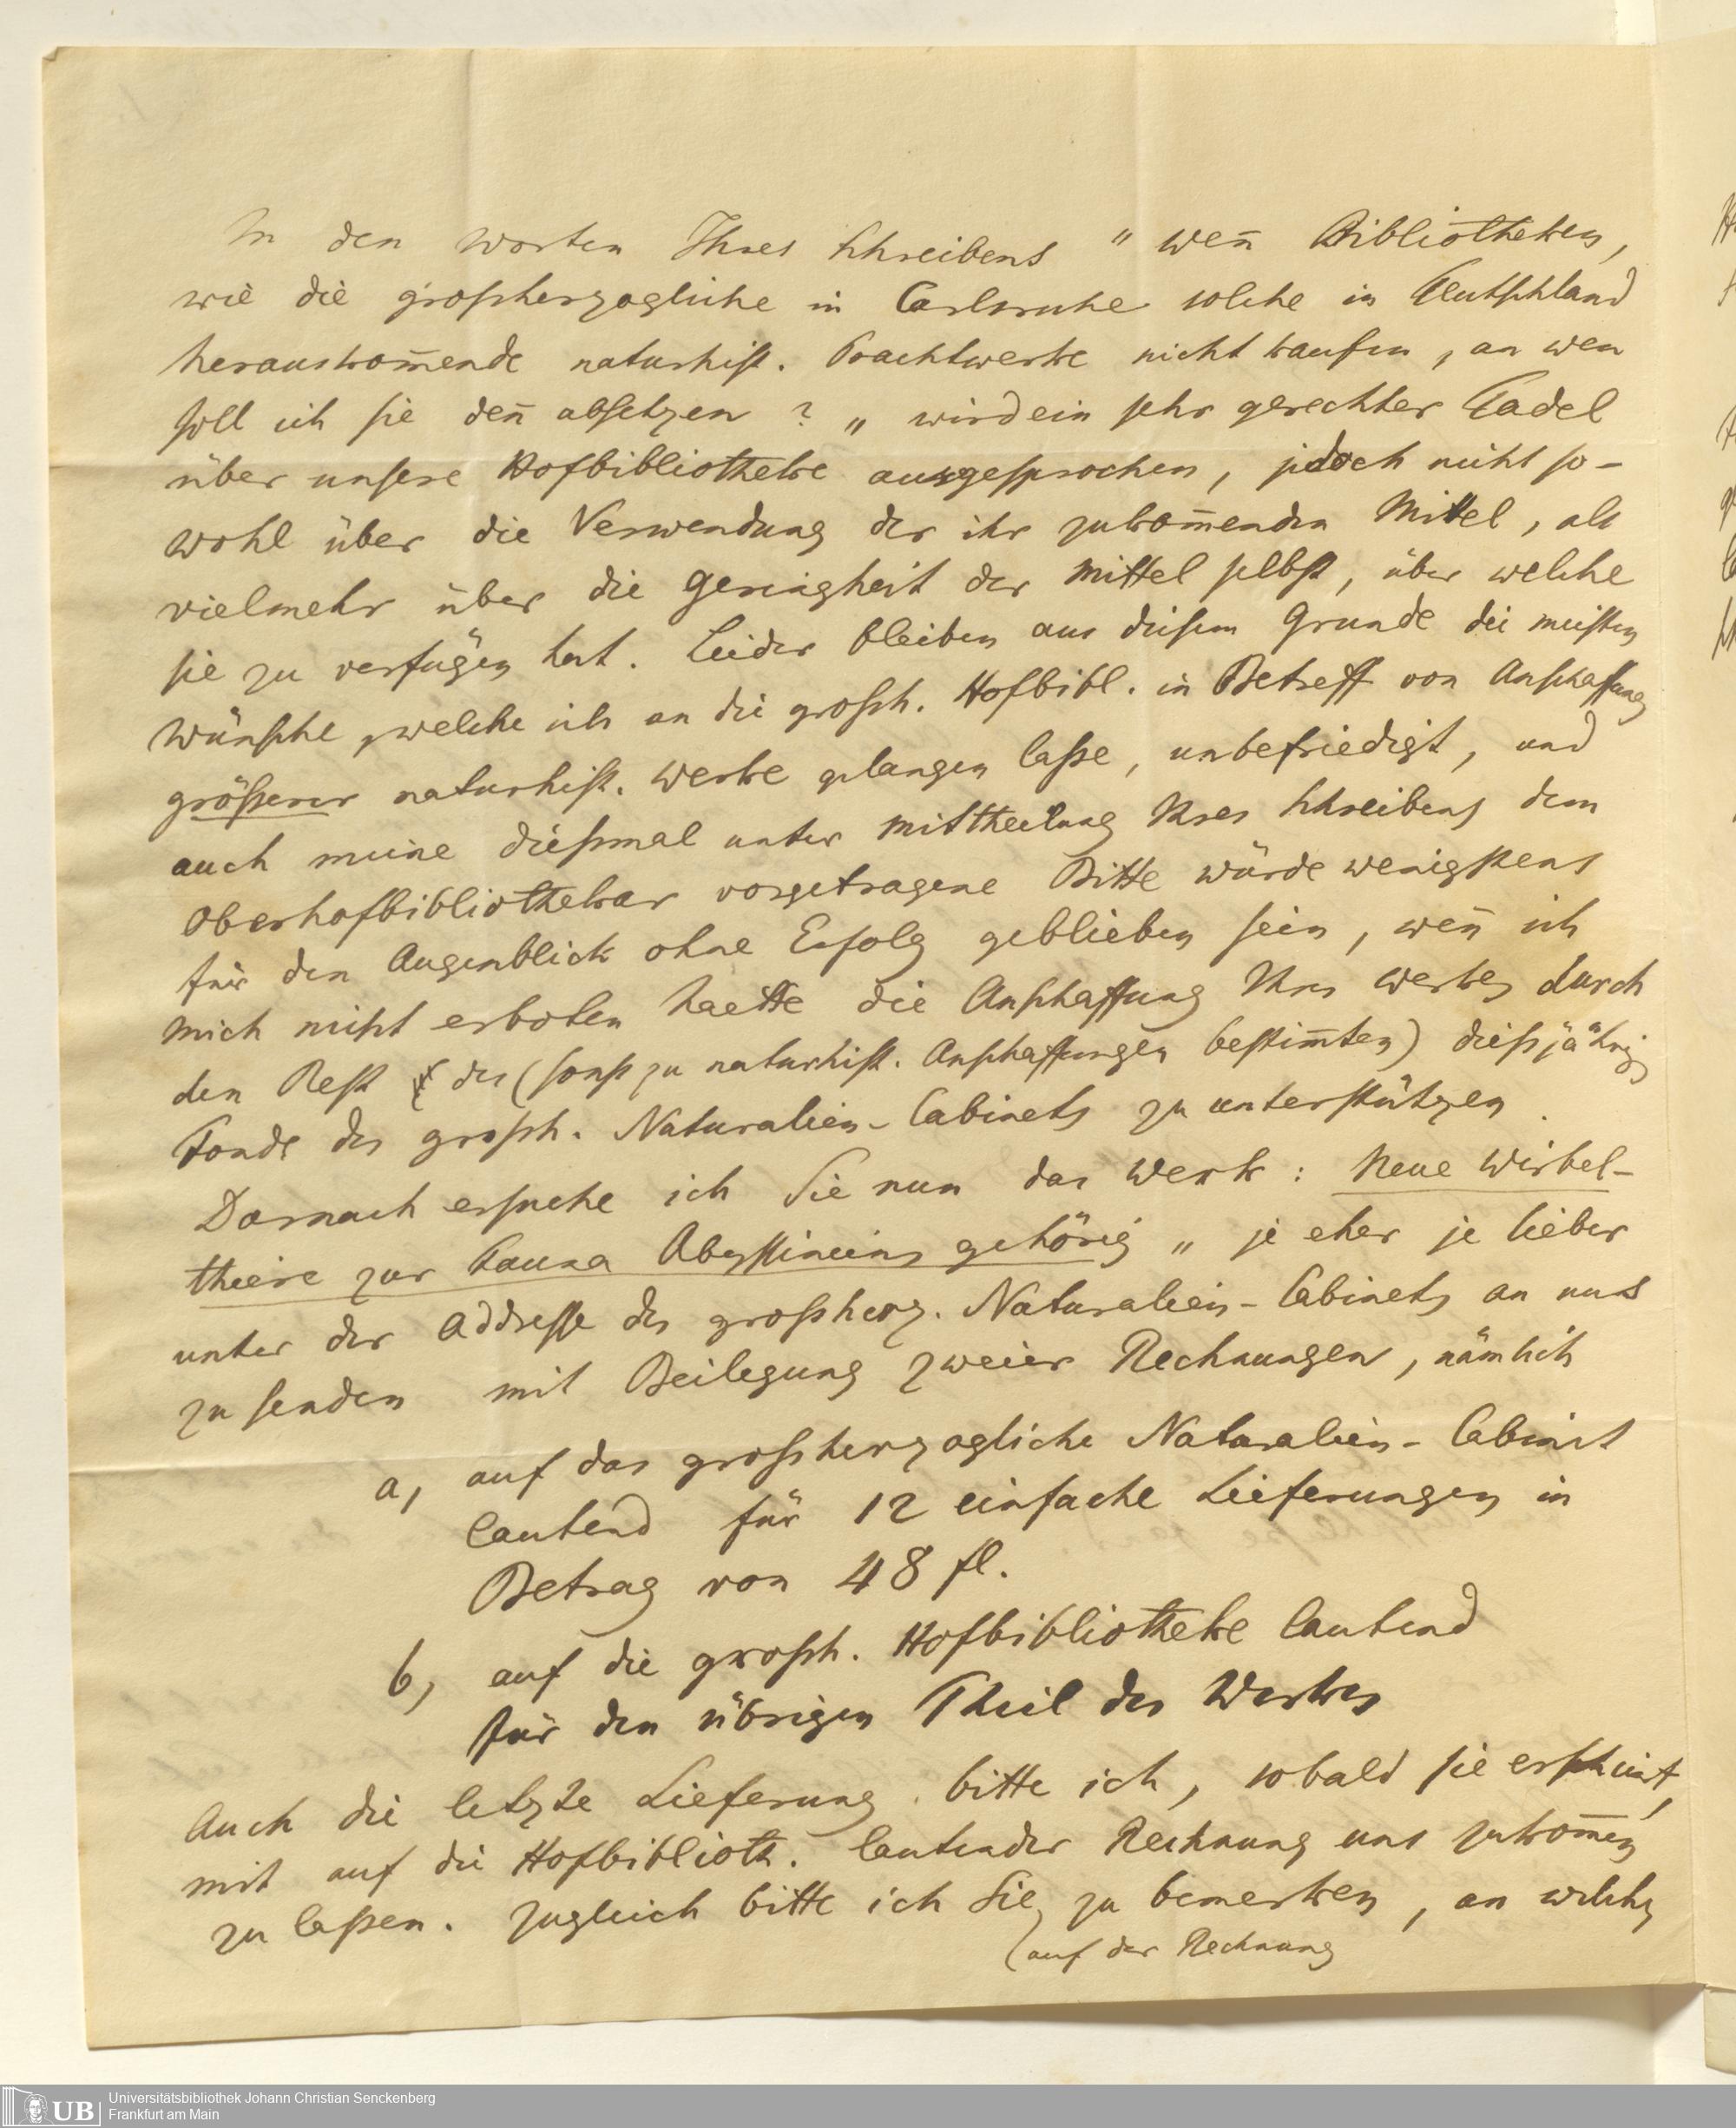 In den Worten Ihres Schreibens " wen̄ Bibliotheken,
wie die großherzogliche in Carlsruhe solche in Teutschland
herauskom̄ende naturhist. Prachtwerke nicht kaufen, an wen
soll ich sie den̄ absetzen? „ wird ein sehr gerechter Tadel
über unsere Hofbibliotheke ausgesprochen, jedoch nicht so-
wohl über die Verwendung der ihr zukom̄enden Mittel, als
vielmehr über die Geringheit der Mittel selbst, über welche
sie zu verfügen hat. Leider bleiben aus diesem Grunde die meisten
Wünsche, welche ich an die grossh. Hofbibl. in Betreff von Anschaffung
größerer naturhist. Werke gelangen laße, unbefriedigt, und
auch meine dießmal unter Mittheilung Ihres Schreibens dem
Oberhofbibliothekar vorgetragene Bitte würde wenigstens
für den Augenblick ohne Erfolg geblieben sein, wen̄ ich
mich nicht erboten haette die Anschaffung Ihres Werkes durch
den Rest des (sonst zu naturhist. Anschaffungen bestim̄ten) dießjährig
Fonds des grossh. Naturalien-Cabinets zu unterstützen.
Darnach ersuche ich Sie nun das Werk: Neue Wirbel-
thiere zur Fauna Abyssiniens gehörig „ je eher je lieber
unter der Addresse des großherz. Naturalien-Cabinets an uns
zu senden mit Beilegung zweier Rechnungen, nämlich
a, auf das großherzogliche Naturalien-Cabinet
lautend für 12 einfache Lieferungen in
Betrag von 48 fl.
b, auf die grossh. Hofbibliotheke lautend
für den übrigen Theil des Werkes
Auch die letzte Lieferung bitte ich, sobald sie erscheint,
mit auf die Hofbiblioth. lautender Rechnung uns zukom̄en
zu laßen. Zugleich bitte ich Sie zu bemerken, an welche
(auf der Rechnung
UB
Universitätsbibliothek Johann Christian Senckenberg
Frankfurt am Main